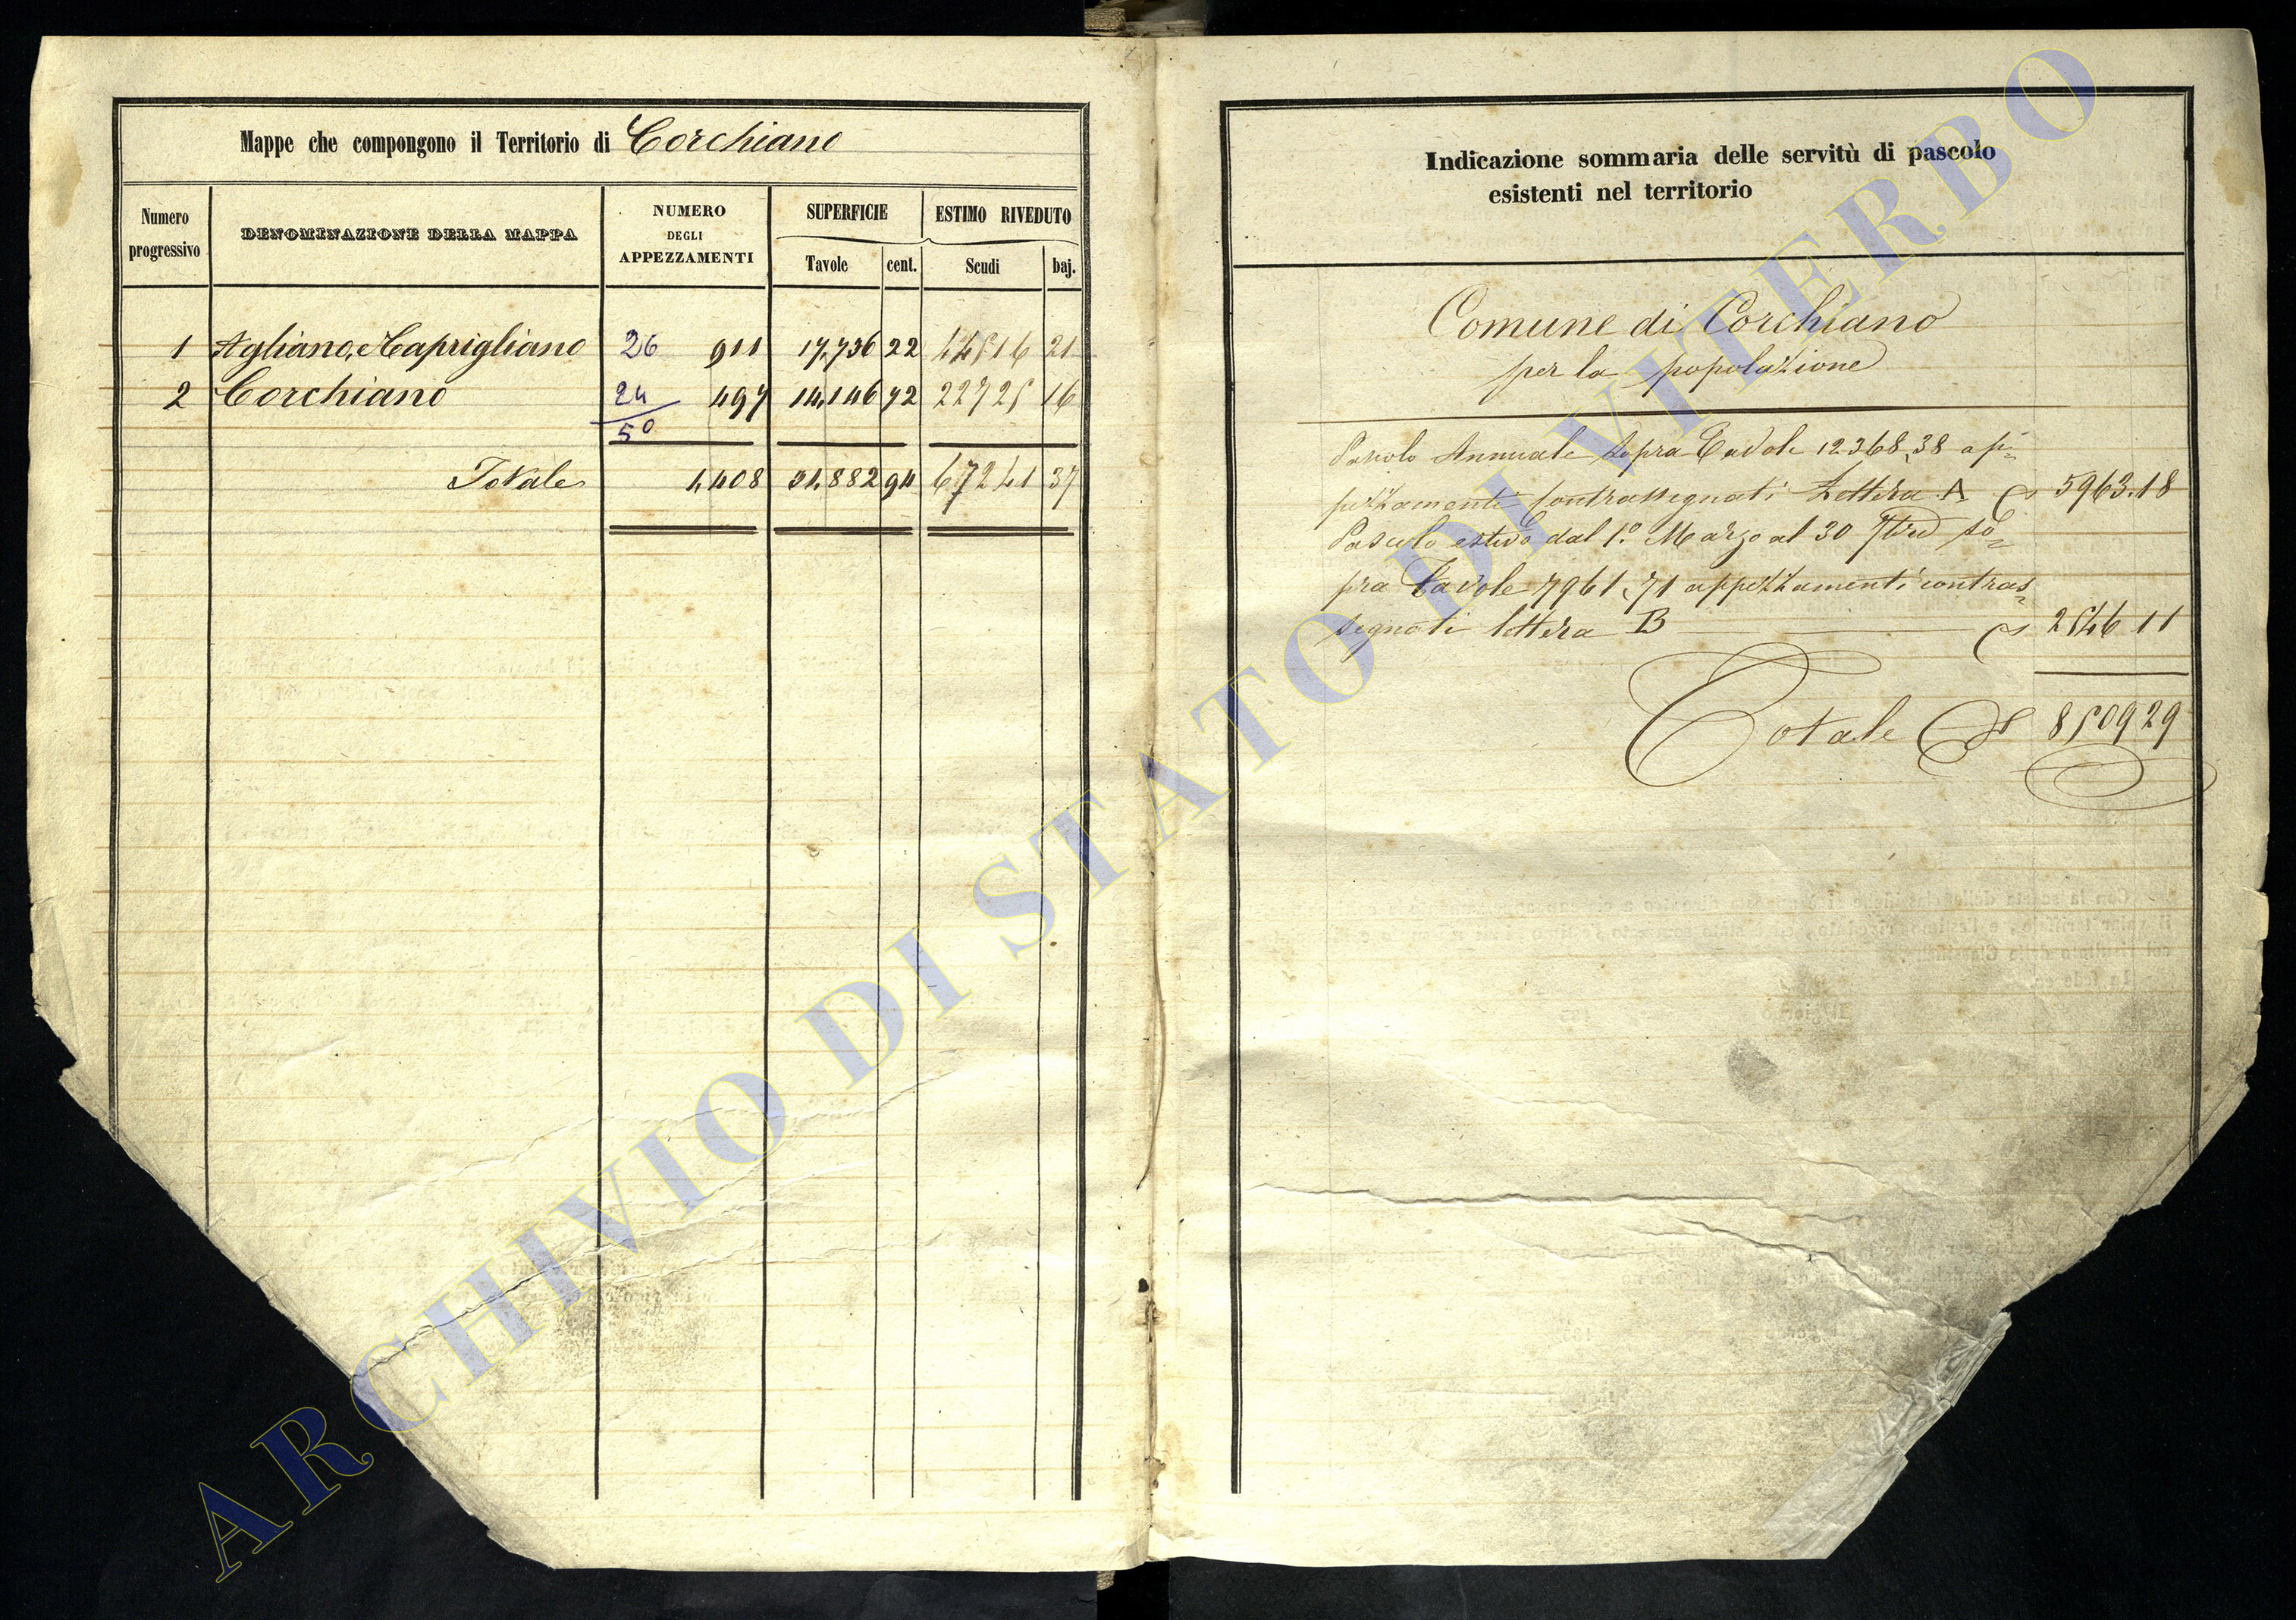 Mappe che compongono il Territorio di Corchiano
Numero progressivo DENOMINAZIONE DELLA MAPPA NUMERO DEGLI APPEZZAMENTI SUPERFICIE ESTIMO RIVEDUTO
Tavole cent. Scudi baj.
1 Agliano, e Caprigliano 26 911 17,736 22 44516 21
2 Corchiano 24 497 14,146 72 22725 16
50
Totale 1,408 31,882 94 67241 37
Indicazione sommaria delle servitù di pascolo
esistenti nel territorio
Comune di Corchiano
per la popolazione
Pascolo Annuale sopra Tavole 12368,38 ap=
pezzamenti contrassegnati Lettera A 5963.18
Pascolo estivo dal 1.º Marzo al 30 7bre so=
pra Tavole 7961,71 appezzamenti contras=
segnati lettera B 2546 11
Totale 8509 29
ARCHIVIO DI STATO DI VITERBO